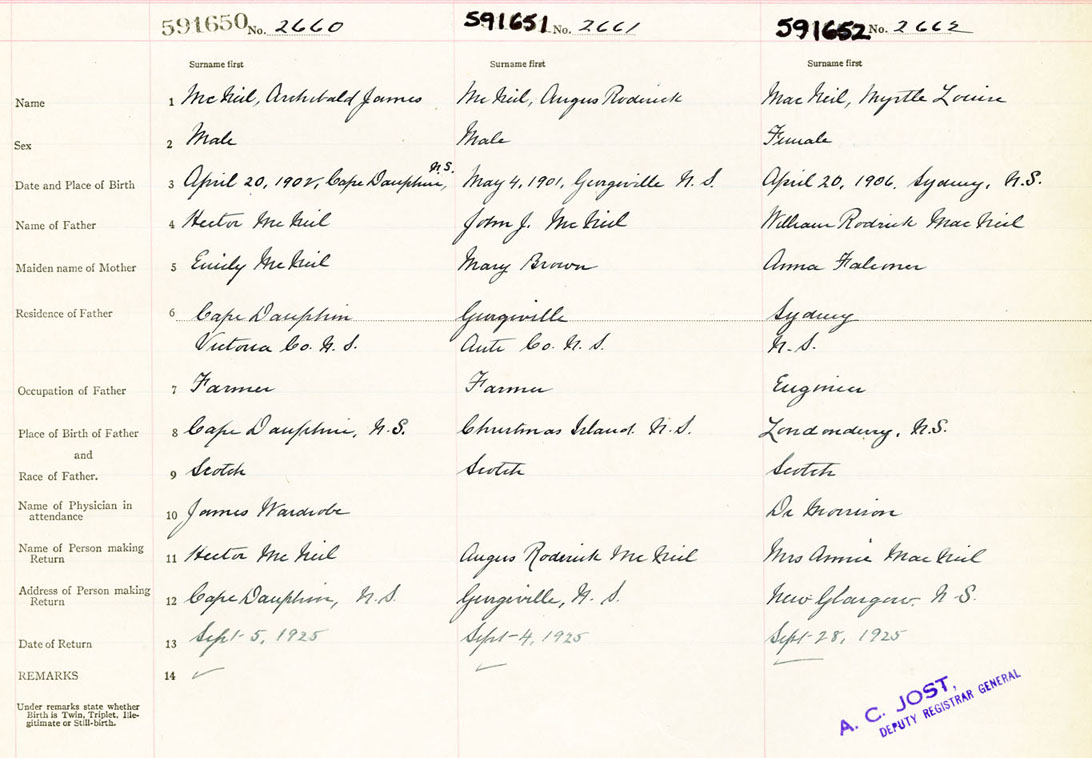 591650 No. 2660 591651 No. 2661 591652 No. 2662
Surname first Surname first Surname first
Name 1 McNeil, Archibald James McNeil, Angus Roderick MacNeil, Myrtle Louise
Sex 2 Male Male Female
Date and Place of Birth 3 April 20, 1902, Cape Dauphin, N.S. May 4, 1901, Georgeville N.S. April 20, 1906. Sydney, N.S.
Name of Father 4 Hector McNeil John J. McNeil William Rodrick MacNeil
Maiden name of Mother 5 Emily McNeil Mary Brown Anna Falconer
Residence of Father 6 Cape Dauphin Georgeville Sydney
Victoria Co. N.S. Ante Co. N.S. N.S.
Occupation of Father 7 Farmer Farmer Engineer
Place of Birth of Father 8 Cape Dauphin, N.S. Christmas Island. N.S. Londonderry, N.S.
and
Race of Father. 9 Scotch Scotch Scotch
Name of Physician in
attendance 10 James Wardrobe Dr Morrison
Name of Person making
Return 11 Hector McNeil Angus Roderick McNeil Mrs Annie MacNeil
Address of Person making
Return 12 Cape Dauphin, N.S. Georgeville, N.S. New Glasgow. N.S.
Date of Return 13 Sept-5, 1925 Sept-4, 1925 Sept-28, 1925
REMARKS 14
Under remarks state whether
Birth is Twin, Triplet, Ille-
gitimate or Still-birth.
A. C. JOST,
DEPUTY REGISTRAR GENERAL